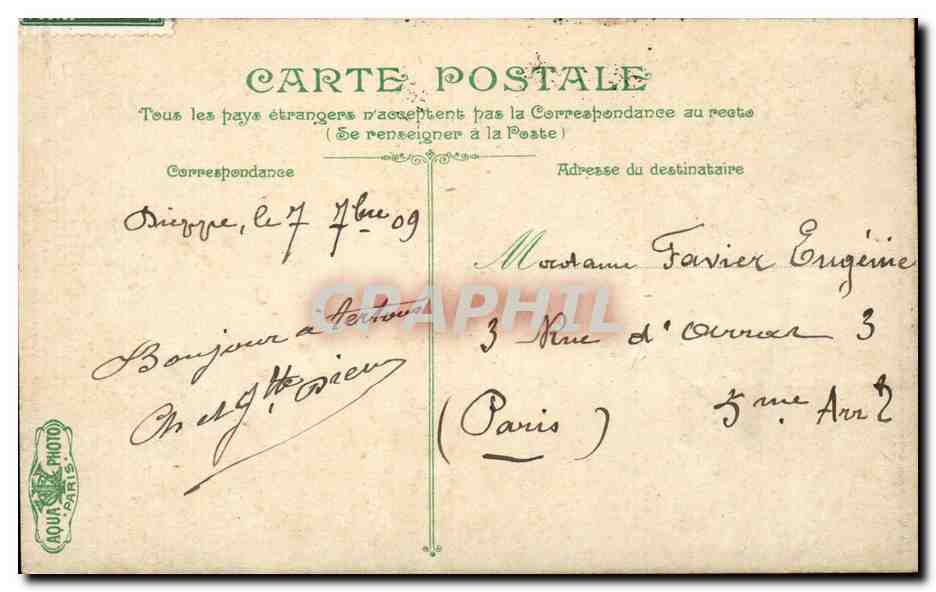 CARTE POSTALE
Tous les pays étrangers n'acceptent pas la Correspondance au recto
(Se renseigner à la Poste)
Correspondance
Adresse du destinataire
Dieppe, le 7 7bre 09
Bonjour a tertous
Ch et
Madame Favier Eugénie
3 Rue d' Arras 3
(Paris) 5me Arrt
CRAPHIL
AQUA PHOTO
PARIS